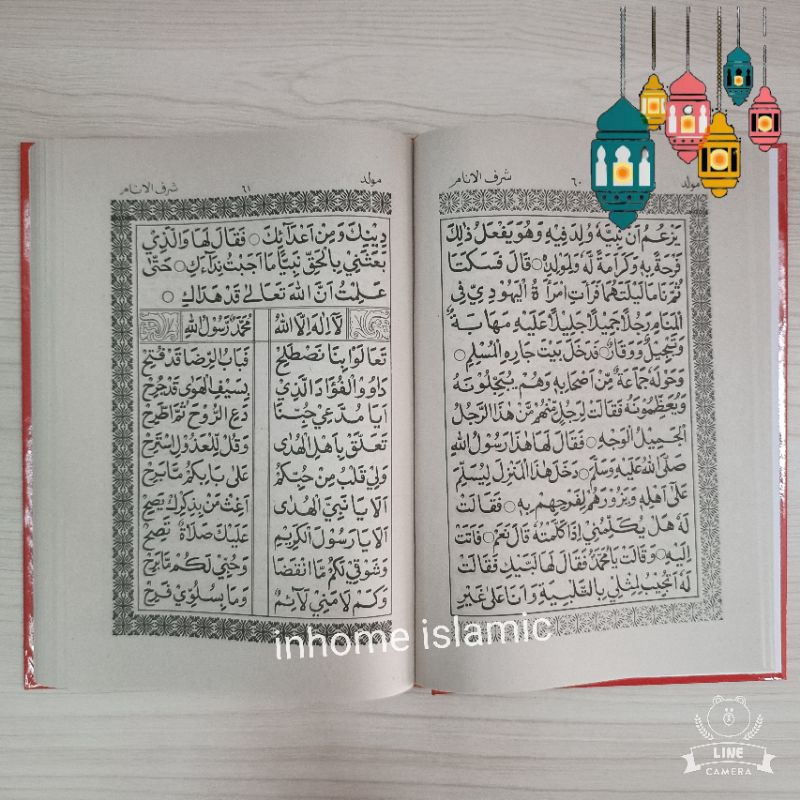 مولد ٦٠ شرف الانام
يَزْعُمُ اَنَّ نَبِيَّهُ وُلِدَ فِيْهِ وَهُوَ يَفْعَلُ ذٰلِكَ
فَرْحَةً بِهِ وَكَرَامَةً لَهُ وَلِمَوْلِدِهِ ۝ قَالَ فَسَكَتَا
ثُمَّ نَامَا لَيْلَتَهُمَا فَرَأَتِ امْرَأَةُ الْيَهُوْدِيِّ فِي
الْمَنَامِ رَجُلًا جَمِيْلًا جَلِيْلًا عَلَيْهِ مَهَابَةٌ
وَتَبْجِيْلٌ وَوَقَارٌ ۝ فَدَخَلَ بَيْتَ جَارِهِ الْمُسْلِمِ ۝
وَحَوْلَهُ جَمَاعَةٌ مِّنْ اَصْحَابِهِ وَهُمْ يُبَجِّلُوْنَهُ
وَيُعَظِّمُوْنَهُ فَقَالَتْ لِرَجُلٍ مِّنْهُمْ مَّنْ هٰذَا الرَّجُلُ
الْجَمِيْلُ الْوَجْهِ ۝ فَقَالَ لَهَا هٰذَا رَسُوْلُ اللهِ
صَلَّى اللهُ عَلَيْهِ وَسَلَّمَ ۝ دَخَلَ هٰذَا الْمَنْزِلَ لِيُسَلِّمَ
عَلَى اَهْلِهِ وَيَزُوْرَهُمْ لِفَرَحِهِمْ بِهِ ۝ فَقَالَتْ
لَهُ هَلْ يُكَلِّمُنِيْ اِذَا كَلَّمْتُهُ قَالَ نَعَمْ ۝ فَاَتَتْ
اِلَيْهِ ۝ وَقَالَتْ يَا مُحَمَّدُ فَقَالَ لَهَا لَبَّيْكِ فَقَالَتْ
لَهُ اَتُجِيْبُ لِمِثْلِيْ بِالتَّلْبِيَةِ وَاَنَا عَلَى غَيْرِ
مولد ٦١ شرف الانام
دِيْنِكَ وَمِنْ اَعْدَآئِكَ ۝ فَقَالَ لَهَا وَالَّذِيْ
بَعَثَنِيْ بِالْحَقِّ نَبِيًّا مَا اَجَبْتُ نِدَاءَكِ ۝ حَتَّى
عَلِمْتُ اَنَّ اللهَ تَعَالٰى قَدْ هَدَاكِ ۝
لَآ اِلٰهَ اِلَّا اللهُ مُحَمَّدٌ رَسُوْلُ اللهِ
تَعَالَوْا بِنَا نَصْطَلِحْ فَبَابُ الرِّضَا قَدْ فُتِحْ
دَاوُوا الْفُؤَادَ الَّذِيْ بِسَيْفِ الْهَوٰى قَدْ جُرِحْ
اَيَا مُدَّعِيْ حُبِّنَا دَعِ الرُّوْحَ ثُمَّ اطَّرِحْ
تَعَلَّقْ بِاَهْلِ الْهُدٰى وَقُلْ لِلْعَذُوْلِ اسْتَرِحْ
وَلِيْ قَلْبٌ مِنْ حُبِّكُمْ عَلٰى بَابِكُمْ مَّا بَرِحْ
اَلَا يَا نَبِيَّ الْهُدٰى اَغِثْ مَنْ بِذِكْرِكَ يَصِحْ
اَلَا يَا رَسُوْلَ الْكَرِيْمِ عَلَيْكَ صَلَاةٌ تَصِحْ
وَشَوْقِيْ لَكُمْ مَّا انْقَضَا وَحُبِّيْ لَكُمْ مَّا بَرِحْ
وَكَمْ لَامَنِيْ لَآئِمٌ وَمَا بِسُلُوِّيْ فَرِحْ
inhome islamic
LINE
CAMERA